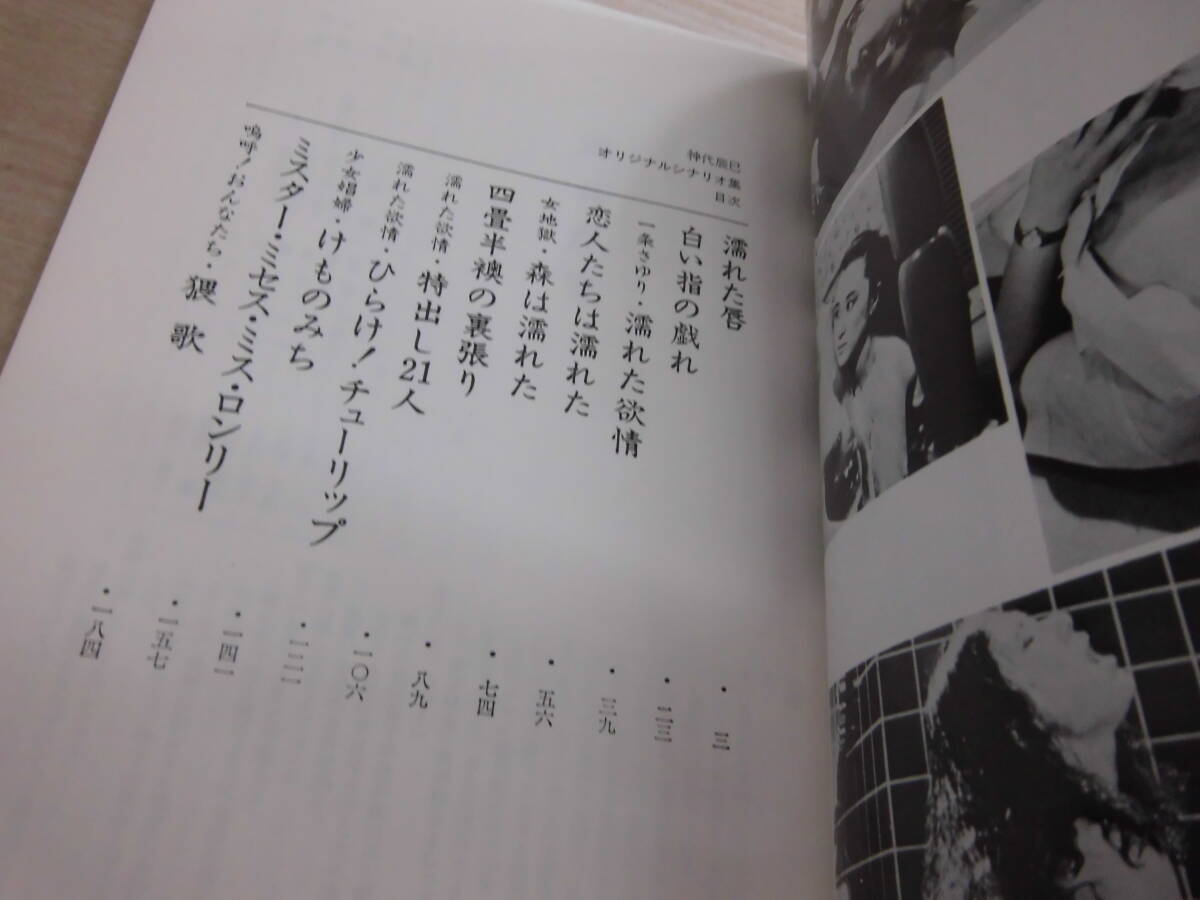 神代辰巳
オリジナルシナリオ集
目次
濡れた唇
・三
白い指の戯れ
・二三
一条さゆり・濡れた欲情
・三九
恋人たちは濡れた
・五六
女地獄・森は濡れた
・七四
四畳半襖の裏張り
・八九
濡れた欲情・特出し21人
・一〇六
濡れた欲情・ひらけ!チューリップ
・一二一
少女娼婦・けものみち
・一四一
ミスター・ミセス・ミス・ロンリー
・一五七
嗚呼!おんなたち・猥歌
・一八四